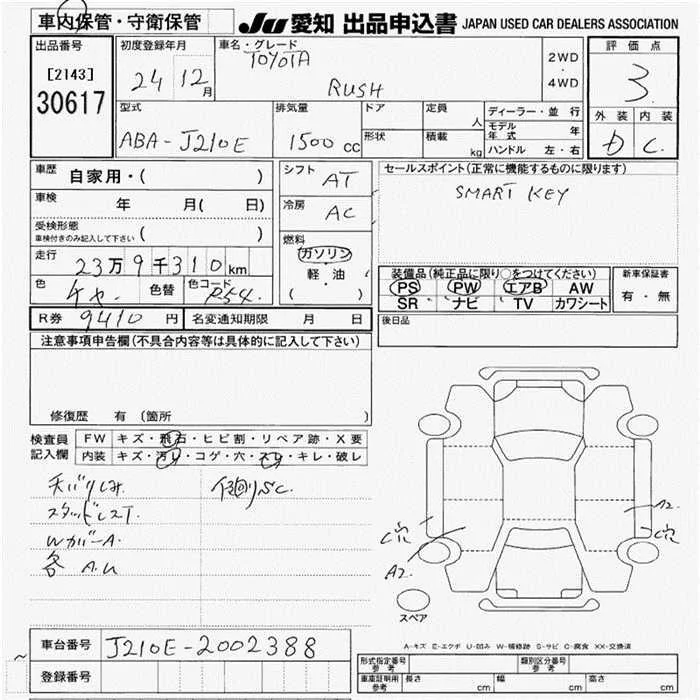 車内保管・守衛保管
JU 愛知 出品申込書 JAPAN USED CAR DEALERS ASSOCIATION
出品番号
[2143]
30617
初度登録年月
24 12月
車名・グレード
TOYOTA
RUSH
2WD
・
4WD
評価点
3
外装 内装
D C
型式
ABA-J210E
排気量
1500cc
ドア
形状
定員
人
積載
kg
ディーラー・並行
モデル年式 年
ハンドル 左・右
車歴
自家用・( )
車検
年 月( 日)
受検形態
車検付きのみ記入して下さい ( )
走行
23万9千310km
色
色替
色コード
R54
シフト
AT
冷房
AC
燃料
ガソリン
軽・油
( )
セールスポイント(正常に機能するものに限ります)
SMART KEY
装備品(純正品に限り○をつけてください)
PS PW エアB AW
SR ナビ TV カワシート
新車保証書
有・無
R券 9410円
名変通知期限 月 日
後日品
注意事項申告欄(不具合内容等は具体的に記入して下さい)
修復歴 有(箇所 )
検査員
記入欄
FW キズ・飛石・ヒビ割・リペア跡・X要
内装 キズ・汚レ・コゲ・穴・スレ・キレ・破レ
天バリしみ
スタッドレスT.
WカバーA.
各 A.U
下廻りSC.
A2
C穴
C穴
A2
スペア
A-キズ E-エクボ U-凹み W-補修跡 S-サビ C-腐食 XX-交換済
車台番号
J210E-2002388
登録番号
型式指定番号
参考
類別区分番号
参考
車庫証明用
参考
長さ cm
幅 cm
高さ cm